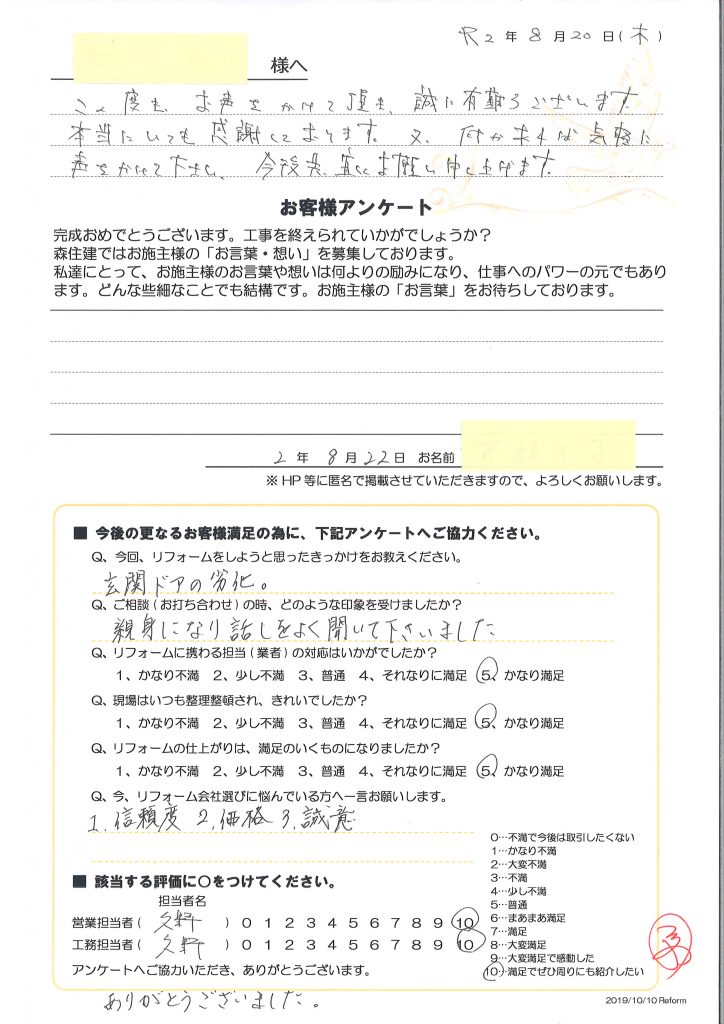 R2年8月20日(木)
様へ
この度も、お声をかけて頂き、誠に有難うございます。
本当にいつも感謝しております。又、何か有れば気軽に
声をかけて下さい、今後共、宜しくお願い申し上げます。
お客様アンケート
完成おめでとうございます。工事を終えられていかがでしょうか？
森住建ではお施主様の「お言葉・想い」を募集しております。
私達にとって、お施主様のお言葉や想いは何よりの励みになり、仕事へのパワーの元でもあり
ます。どんな些細なことでも結構です。お施主様の「お言葉」をお待ちしております。
2年 8月22日 お名前
※HP等に匿名で掲載させていただきますので、よろしくお願いします。
■ 今後の更なるお客様満足の為に、下記アンケートへご協力ください。
Q、今回、リフォームをしようと思ったきっかけをお教えください。
玄関ドアの劣化。
Q、ご相談(お打ち合わせ)の時、どのような印象を受けましたか？
親身になり話しをよく聞いて下さいました
Q、リフォームに携わる担当(業者)の対応はいかがでしたか？
1、かなり不満 2、少し不満 3、普通 4、それなりに満足 5、かなり満足
Q、現場はいつも整理整頓され、きれいでしたか？
1、かなり不満 2、少し不満 3、普通 4、それなりに満足 5、かなり満足
Q、リフォームの仕上がりは、満足のいくものになりましたか？
1、かなり不満 2、少し不満 3、普通 4、それなりに満足 5、かなり満足
Q、今、リフォーム会社選びに悩んでいる方へ一言お願いします。
1.信頼度 2.価格 3.誠意
■ 該当する評価に○をつけてください。
担当者名
営業担当者( 久野 ) 0 1 2 3 4 5 6 7 8 9 10
工務担当者( 久野 ) 0 1 2 3 4 5 6 7 8 9 10
アンケートへご協力いただき、ありがとうございます。
ありがとうございました。
0…不満で今後は取引したくない
1…かなり不満
2…大変不満
3…不満
4…少し不満
5…普通
6…まあまあ満足
7…満足
8…大変満足
9…大変満足で感動した
10…満足でぜひ周りにも紹介したい
2019/10/10 Reform